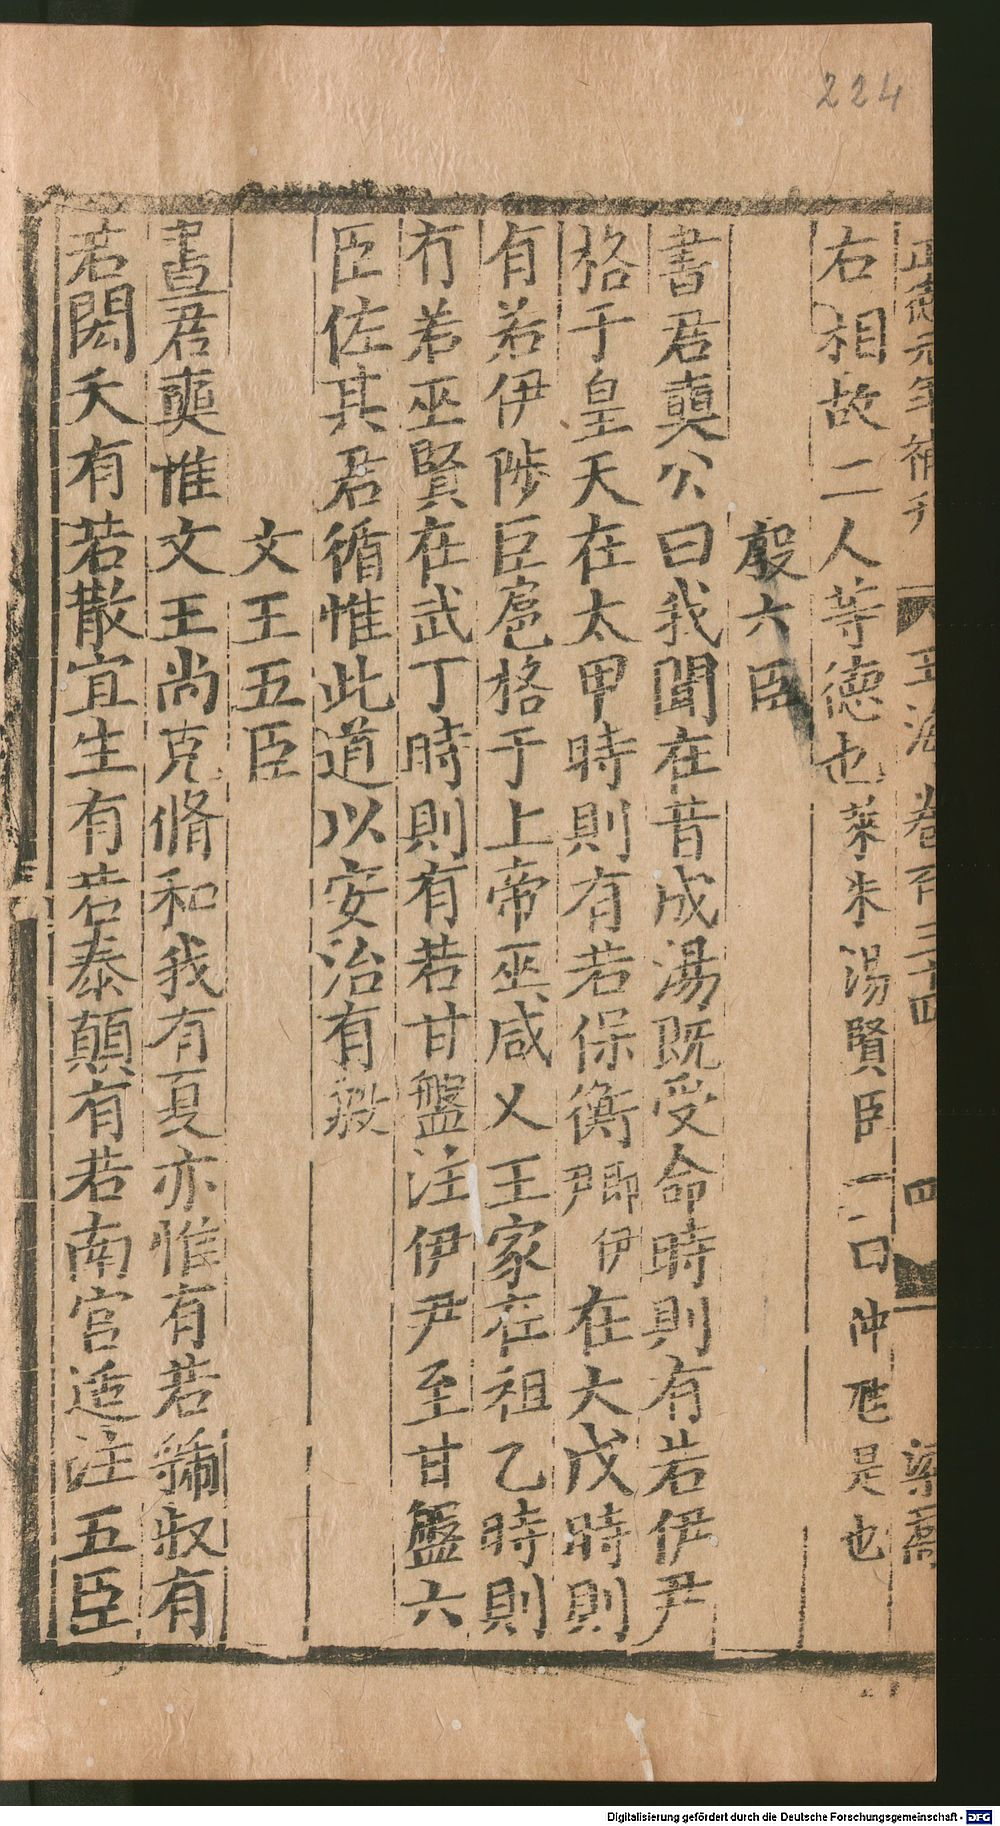 224
正德元年補刋 玉海卷百三十四 四 梁喬
右相故二人等德也萊朱湯賢臣一曰仲虺是也
殷六臣
書君奭公曰我聞在昔成湯旣受命時則有若伊尹
格于皇天在太甲時則有若保衡卽伊尹在大戊時則
有若伊陟臣扈格于上帝巫咸乂王家在祖乙時則
有若巫賢在武丁時則有若甘盤注伊尹至甘盤六
臣佐其君循惟此道以安治有殷
文王五臣
書君奭惟文王尚克脩和我有夏亦惟有若虢叔有
若閎夭有若散宜生有若泰顚有若南宮适注五臣
Digitalisierung gefördert durch die Deutsche Forschungsgemeinschaft - DFG